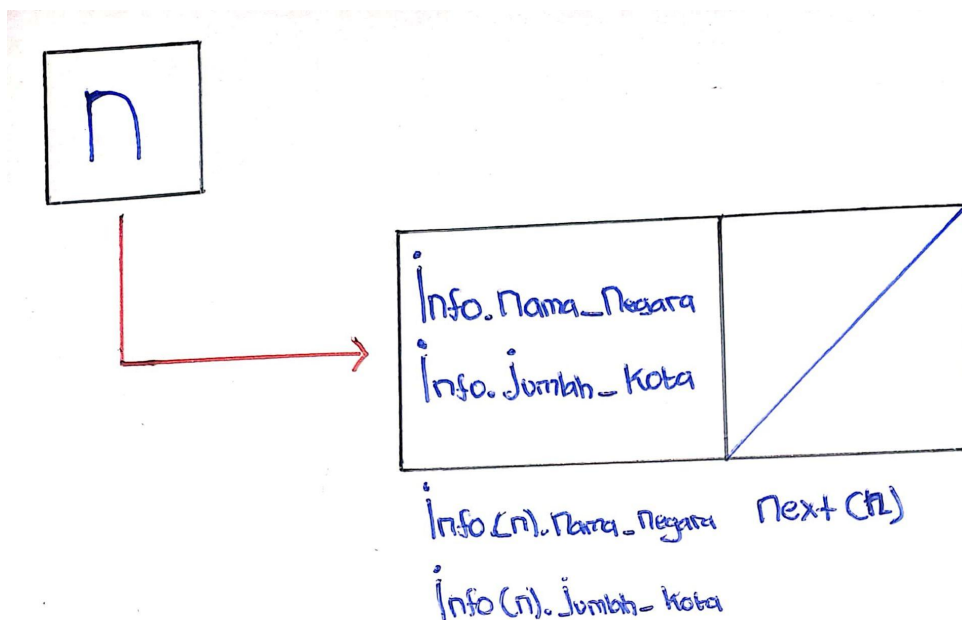 n
info.nama_negara
info.jumlah_kota
info.(n).nama_negara next(n)
info(n).jumlah_kota